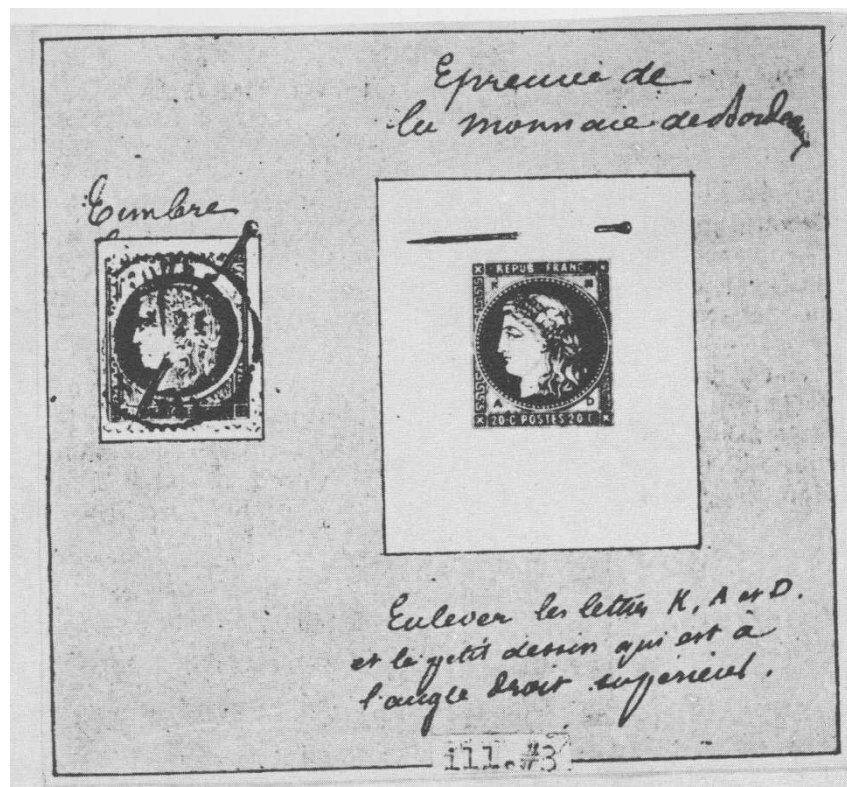 Epreuve de
la monnaie de Bordeaux
Timbre
REPUB FRANC
K
A D
20·C POSTES 20 C
Enlever les lettres K, A et D.
et le petit dessin qui est à
l'angle droit supérieur.
ill.#3